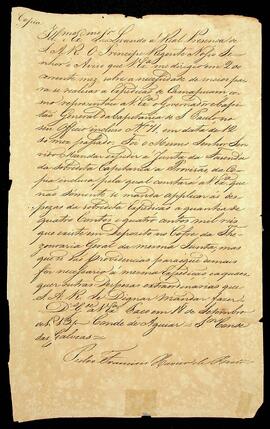 Copia
Illmo e Exmo Sr Levando á Real Presença de
S. A. R. O Principe Regente Nosso Se-
nhor o Aviso que V Exa me dirigio em 2 do cor-
rente mez sobre a necessidade de meios para
se realizar a Expedição de Camapuam co-
mo representou a V Exa o Governador e Capi-
tão General da Capitania de S. Paulo no
seu Officio incluso No 71, em data de 12
do mez passado. Foi o Mesmo Senhor ser-
vido Mandar expedir á Junta da Fazenda
da sobredita Capitania a Provisão da Co-
pia inclusa, pela qual constará a V Exa que
não sómente se manda applicar ás des-
pezas da sobredita Expedição a quantia de
quatro Contos e quatro centos mil reis
que existe em Deposito no Cofre da The-
zouraria Geral da mesma Junta, mas
que se dê Providencias para que o demais
for necessario á mesma Expedição e a quaes-
quer outras despezas extraordinarias que
S. A. R. se Dignar Mandar fazer.
Ds Ge a V Exa Paço em 18 de Setembro
de 181 Conde de Aguiar Sr Conde
das Galveas
Pedro Francisco Xavier de Brito